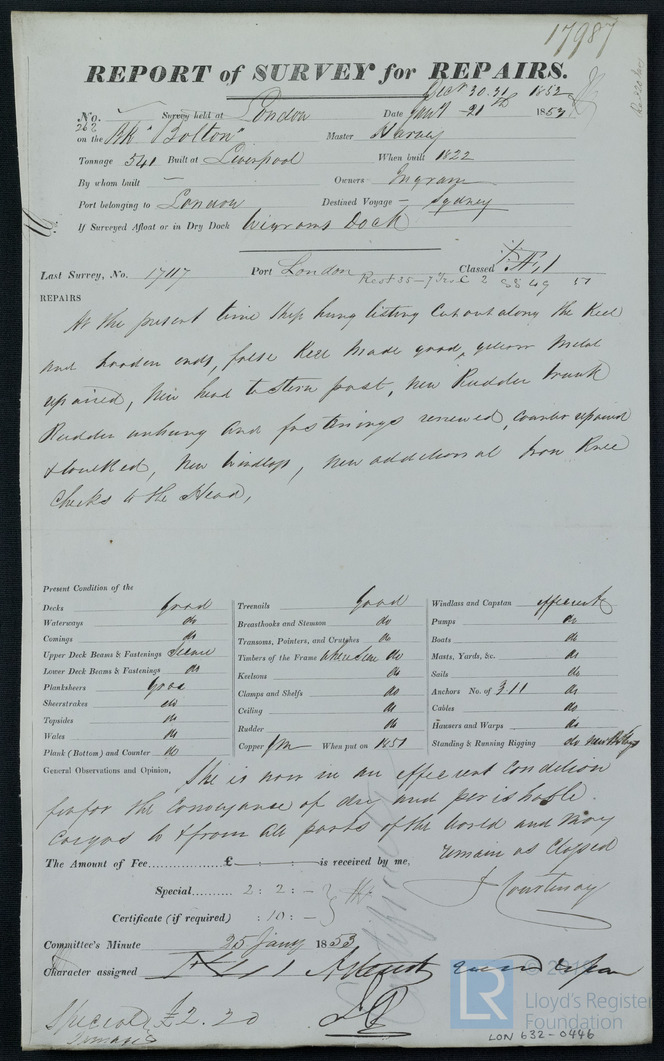 17987
REPORT of SURVEY for REPAIRS.
Decr 30.31 1852
No. Survey held at London Date Jany 21st 1853
268 on the Bk "Bolton" Master Harvey
Tonnage 541 Built at Liverpool When built 1822
By whom built — Owners Ingram
Port belonging to London Destined Voyage — Sydney
If Surveyed Afloat or in Dry Dock Wigrams Dock
Last Survey, No. 17117 Port London Classed Æ 1
Rest 35 - 7
REPAIRS
At the present time Ship hung listing Cut out along the Keel
and hooden ends, false Keel made good, yellow metal
repaired, New head to Stern post, New Rudder trunk
Rudder unhung and fastenings renewed, Counter repaired
& caulked, New Windlass, new additional Iron Knee
Cheeks to the Head,
Present Condition of the
Decks Good
Waterways do
Comings do
Upper Deck Beams & Fastenings
Lower Deck Beams & Fastenings do
Planksheers Good
Sheerstrakes do
Topsides do
Wales do
Plank (Bottom) and Counter do
Treenails Good
Breasthooks and Stemson do
Transoms, Pointers, and Crutches do
Timbers of the Frame where seen do
Keelsons do
Clamps and Shelfs do
Ceiling do
Rudder do
Copper YM When put on 1851
Windlass and Capstan efficient
Pumps do
Boats do
Masts, Yards, &c. do
Sails do
Anchors No. of 3.1.1 do
Cables do
Hausers and Warps do
Standing & Running Rigging do
General Observations and Opinion, She is now in an efficient Condition
for the Conveyance of dry and perishable
Cargos to & from all parts of the World and may
remain as Classed
The Amount of Fee £ is received by me,
J Courtenay
Special 2 : 2 : —
Certificate (if required) : 10 : —
Committee's Minute 25 Jany 1853
Character assigned
Special Damages £2.2.0
© 20
LR
Lloyd's Register
Foundation
LON 632-0446